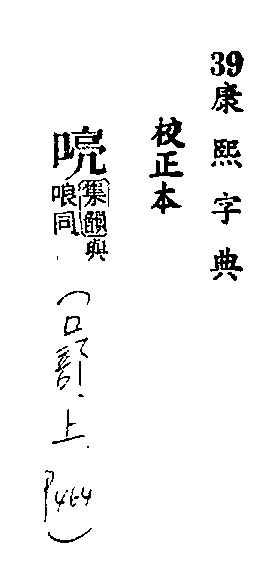 39康熙字典
校正本
喨
集韻與
哴同
(口部.上.
P464)